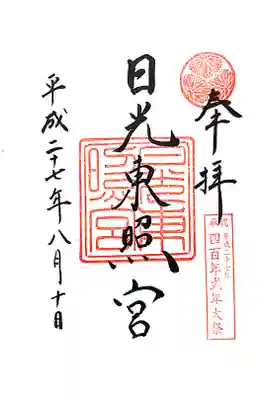 奉拝
四百年式年大祭
日光東照宮
平成二十七年八月十日